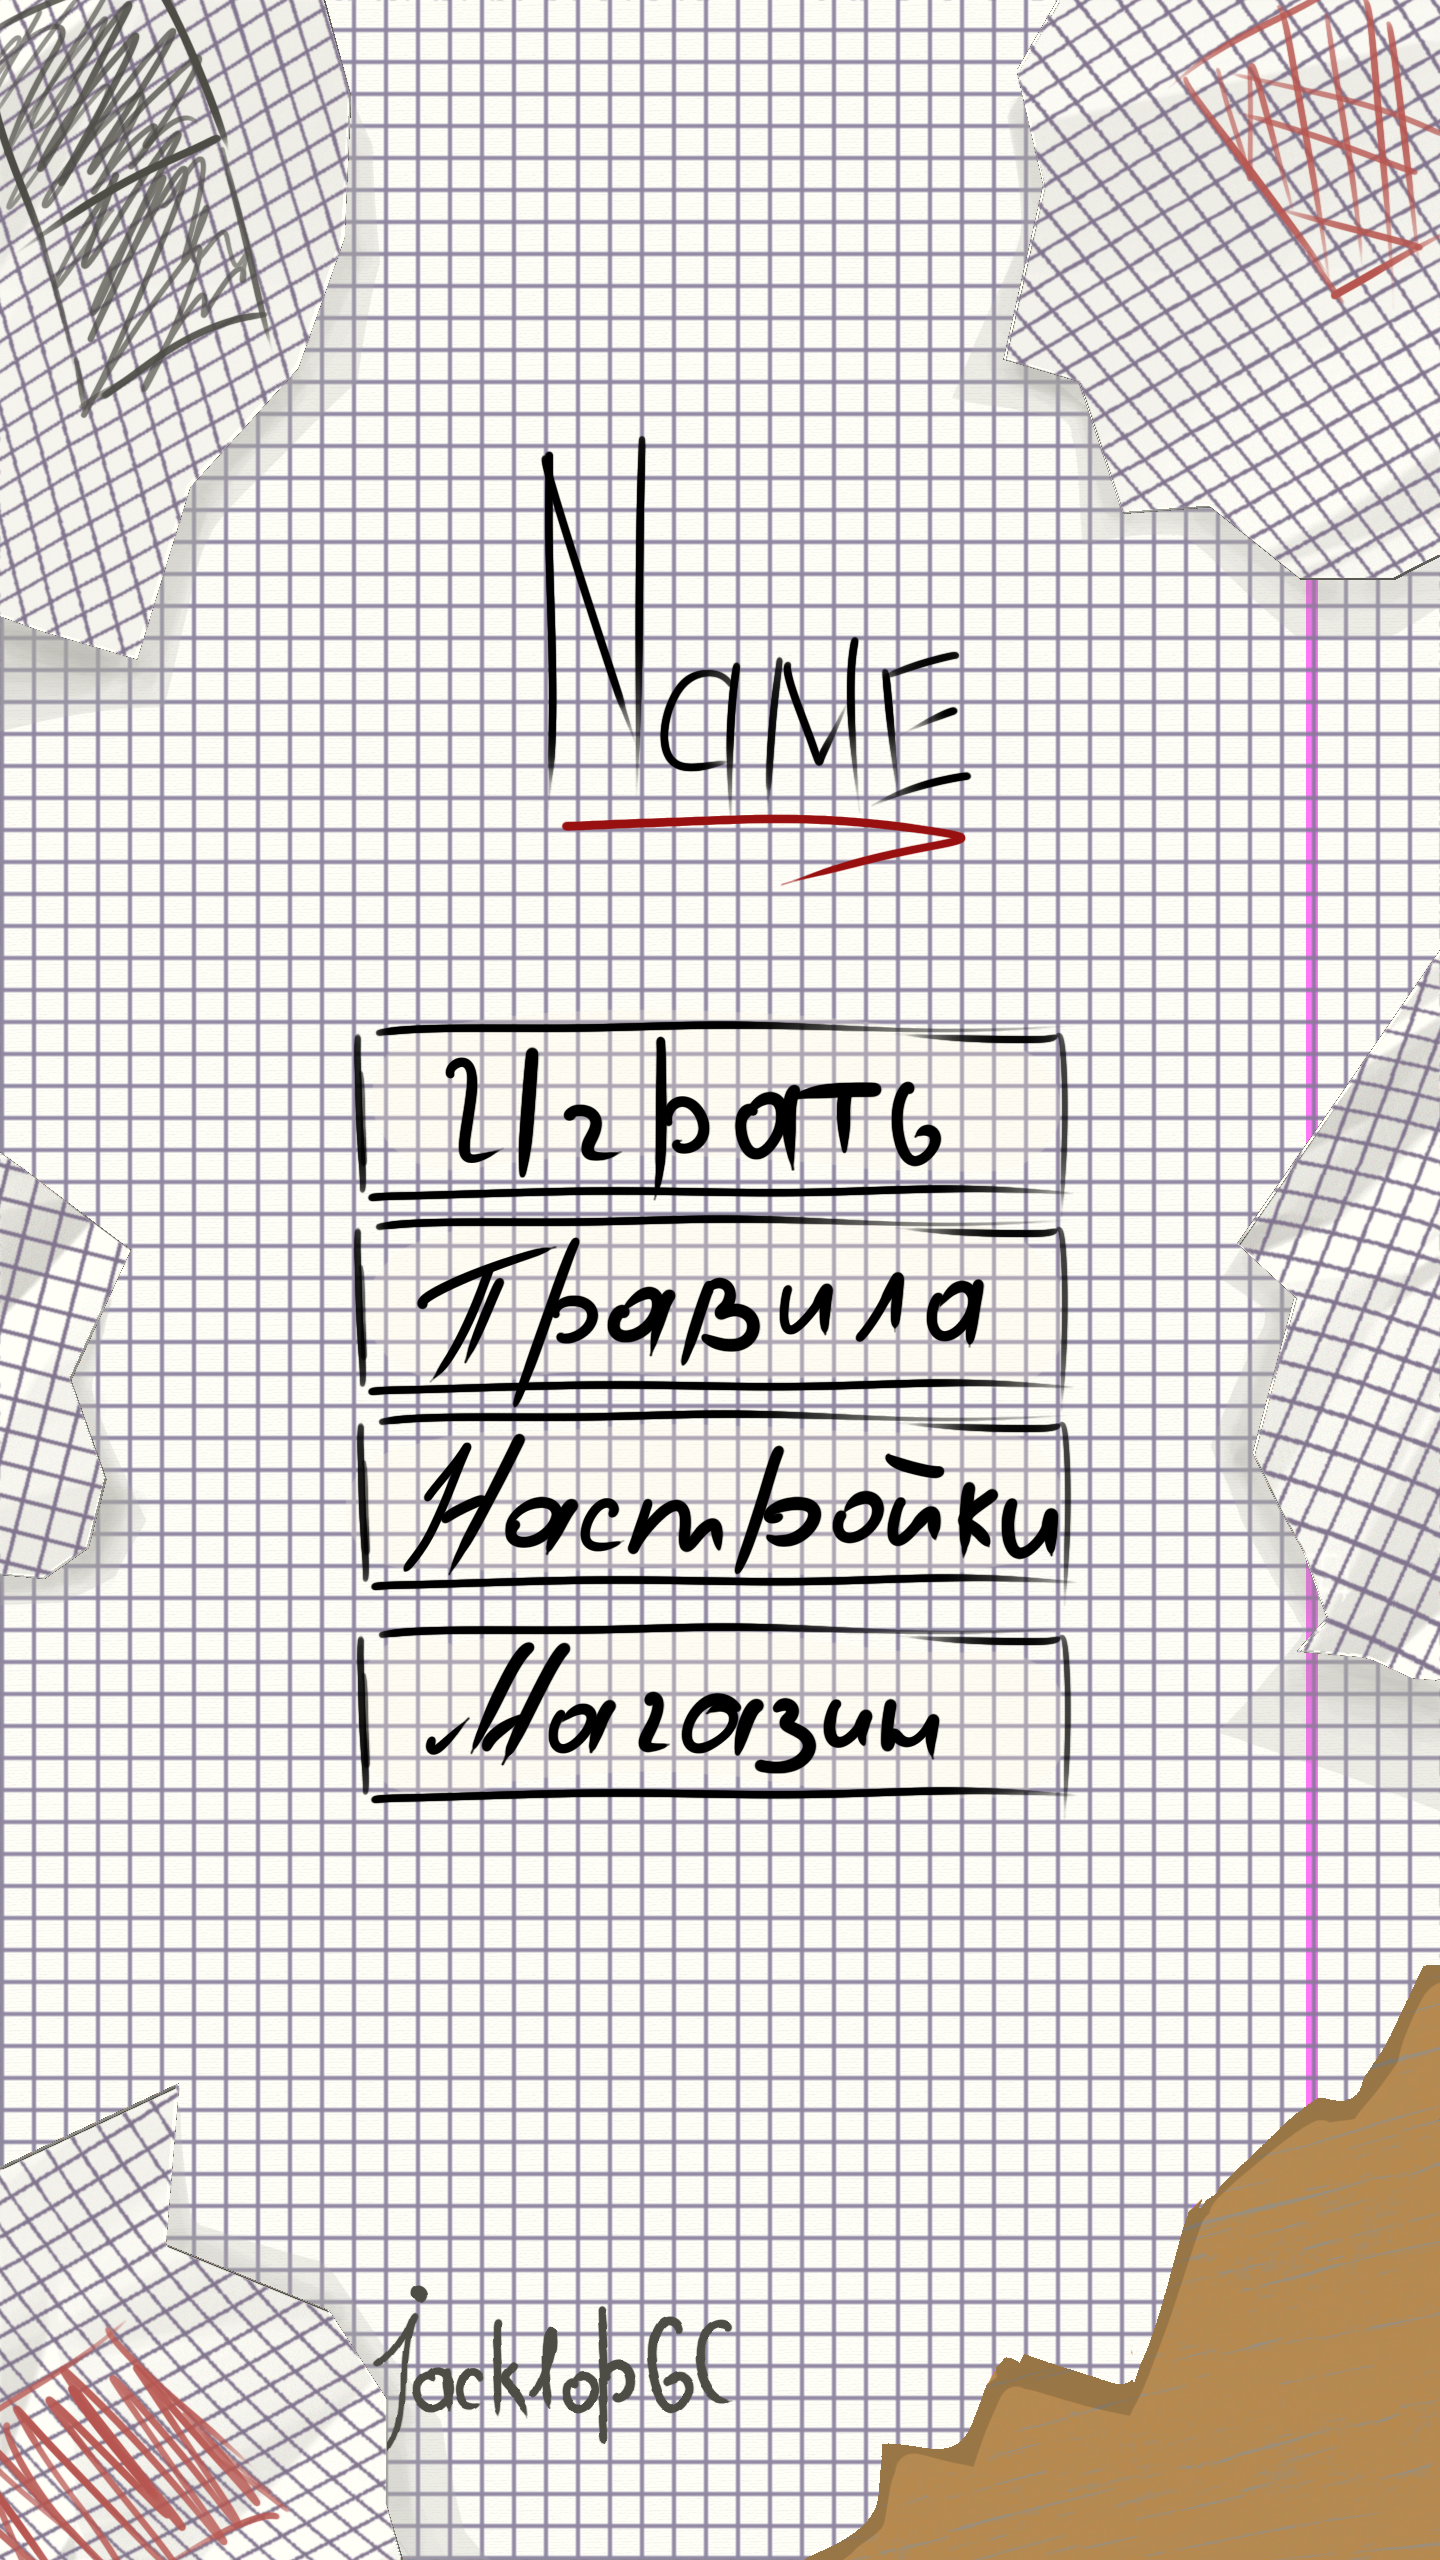 Name
Играть
Правила
Настройки
Магазин
jacklopGC